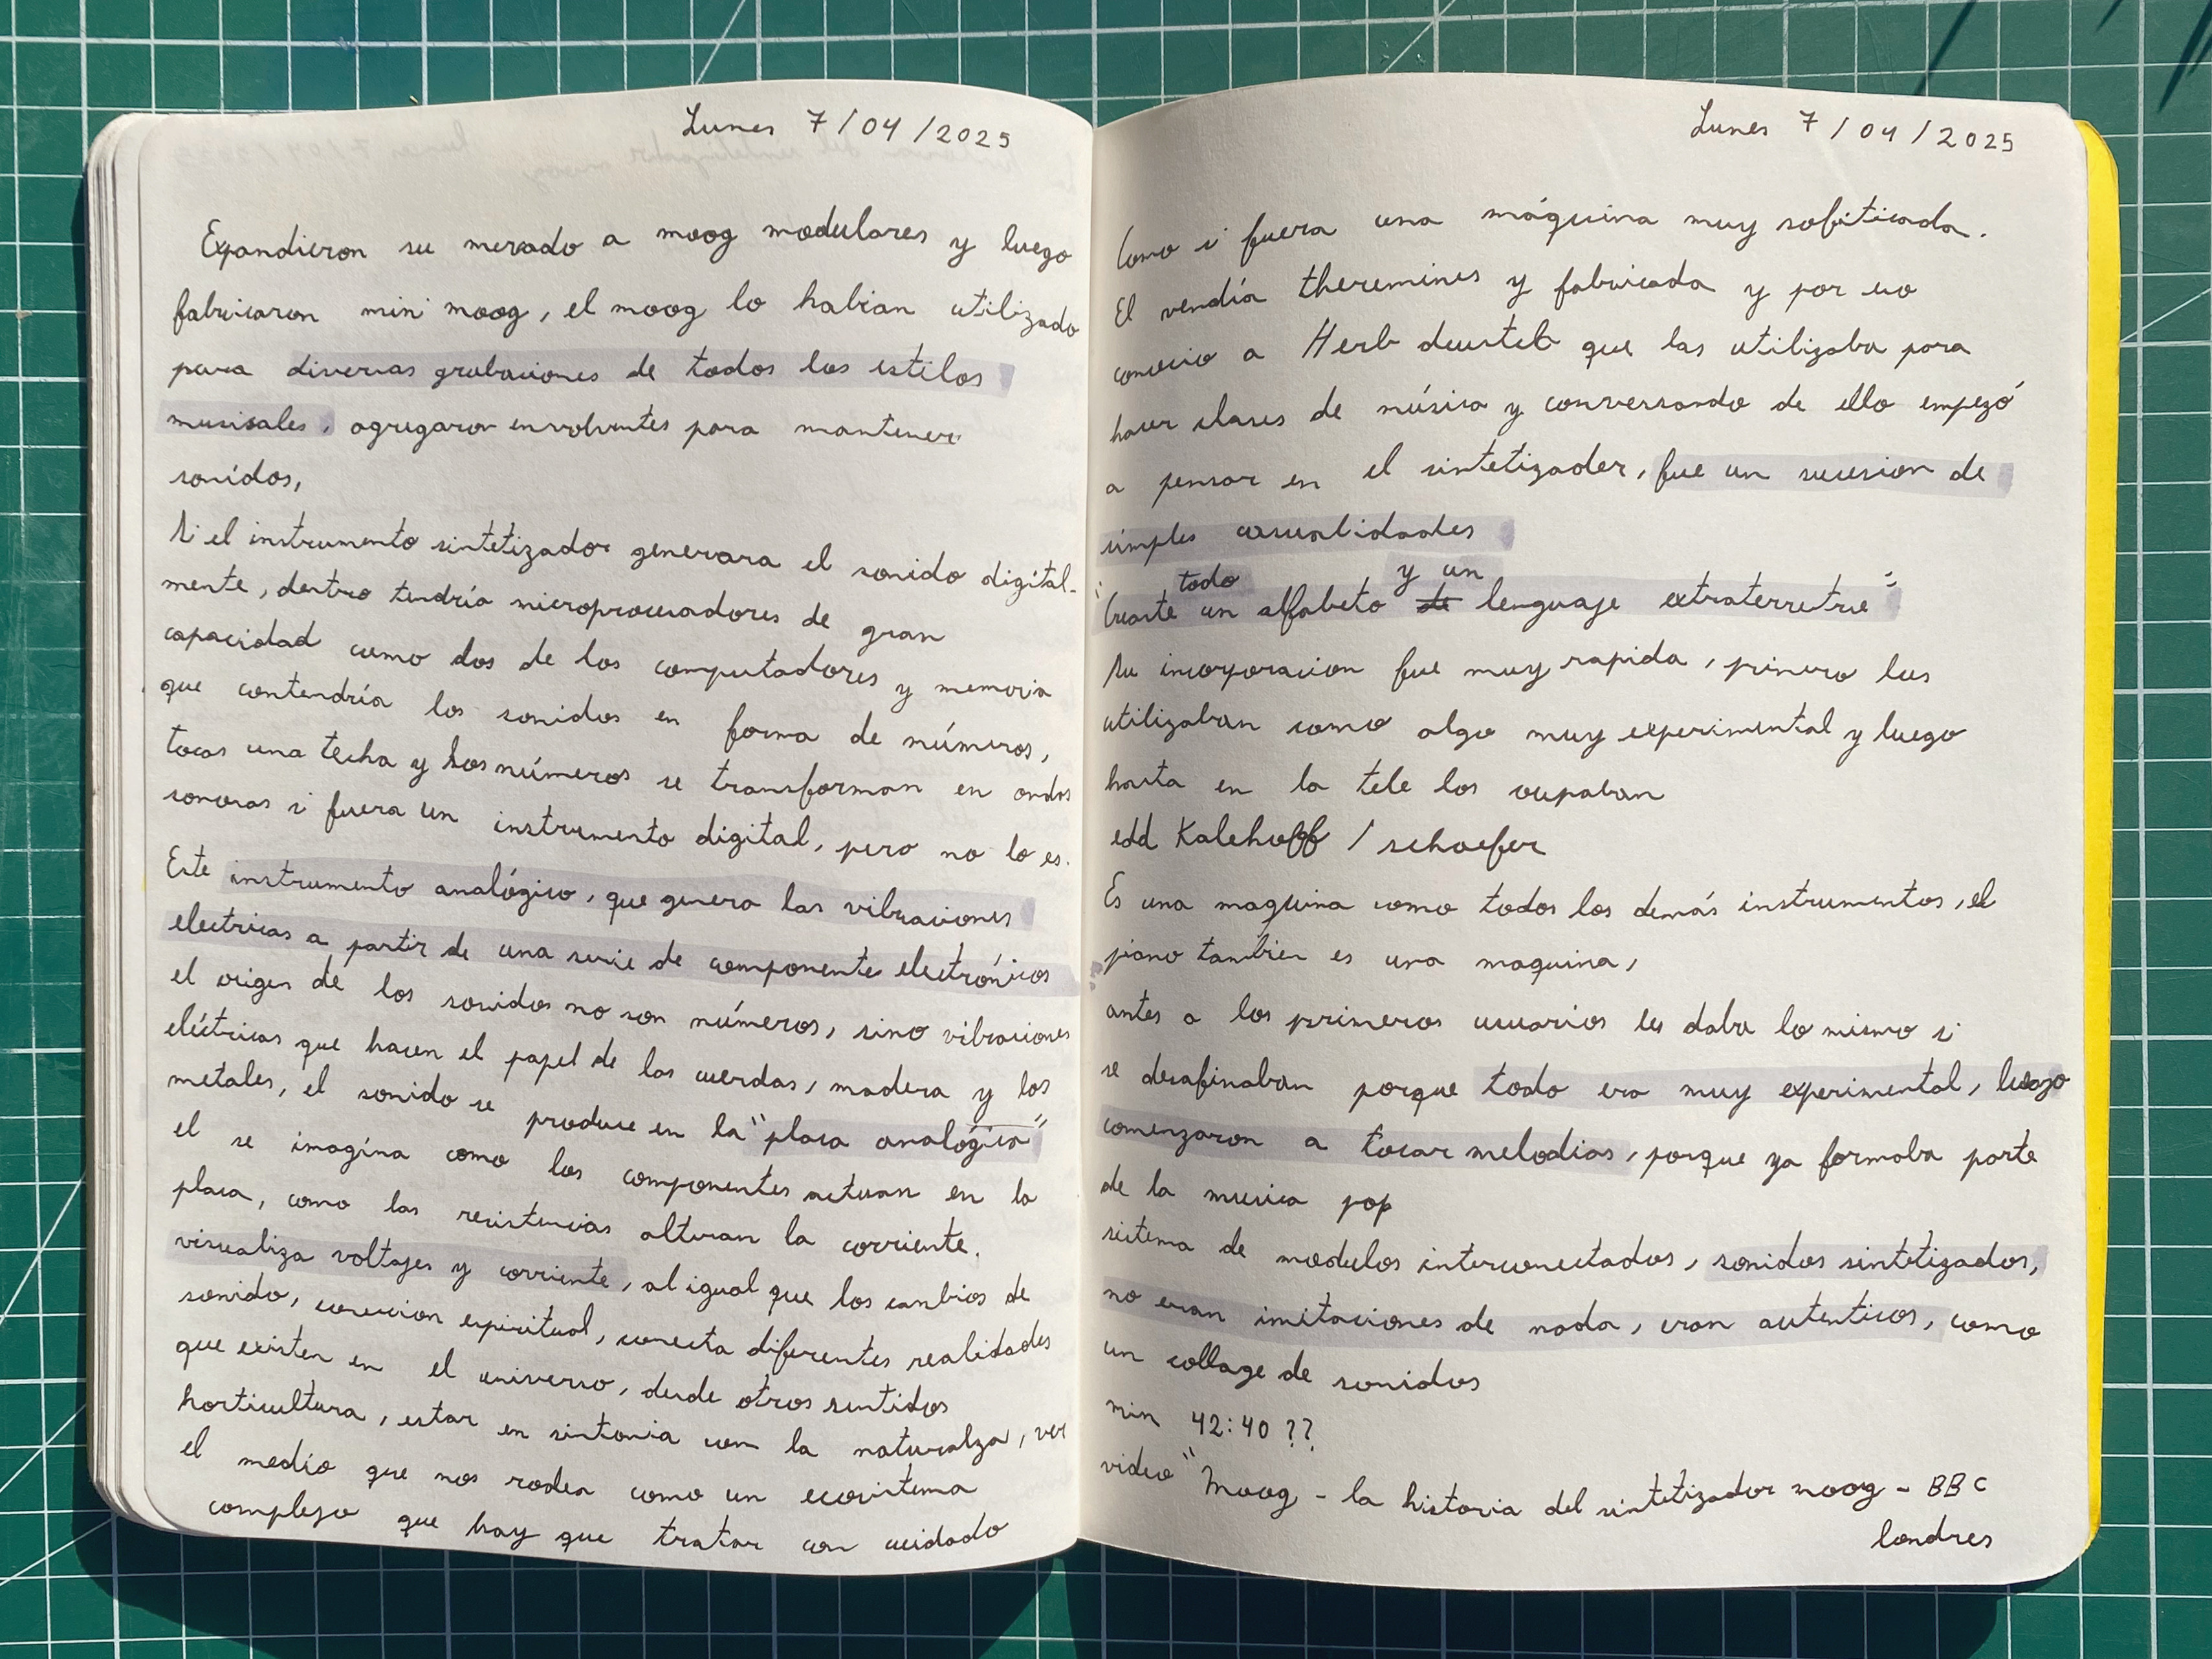 Lunes 7/04/2025
Expandieron su mercado a moog modulares y luego
fabricaron mini moog, el moog lo habian utilizado
para diversas grabaciones de todos los estilos
musicales, agregaron envolventes para mantener
sonidos,
Si el instrumento sintetizador generara el sonido digital-
mente, dentro tendría microprocesadores de gran
capacidad como los de los computadores y memoria
que contendría los sonidos en forma de números,
tocas una techa y los números se transforman en ondas
sonoras si fuera un instrumento digital, pero no lo es.
Este instrumento analógico, que genera las vibraciones
electricas a partir de una serie de componente electrónicos
el origen de los sonidos no son números, sino vibraciones
eléctricas que hacen el papel de las cuerdas, madera y los
metales, el sonido se produce en la "placa analógica"
el se imagina como los componentes actuan en la
placa, como las resistencias alteran la corriente.
visualiza voltajes y corriente, al igual que los cambios de
sonido, conexion espiritual, conecta diferentes realidades
que existen en el universo, desde otros sentidos
horticultura, estar en sintonia con la naturalza, ver
el medio que nos rodea como un ecosistema
complejo que hay que tratar con cuidado
Lunes 7/04/2025
Como si fuera una máquina muy sofisticada.
El vendía theremines y fabricada y por eso
conocio a Herb que las utilizaba para
hacer clases de música y conversando de ello empezó
a pensar en el sintetizader, fue un sucesion de
simples casualidades
"Crearte todo un alfabeto y un lenguaje extraterrestre"
Su incorporacion fue muy rapida, primero los
utilizaban como algo muy experimental y luego
hasta en la tele los ocupaban
edd Kalehoff / schaefer
Es una maquina como todos los demás instrumentos, el
piano tambien es una maquina,
antes a los primeros usuarios les daba lo mismo si
se desafinaban porque todo era muy experimental, luego
comenzaron a tocar melodias, porque ya formaba parte
de la musica pop
sistema de modulos interconectados, sonidos sintetizados,
no eran imitaciones de nada, eran autenticos, como
un collage de sonidos
min 42:40 ??
video "Moog - la historia del sintetizador moog - BBC
londres